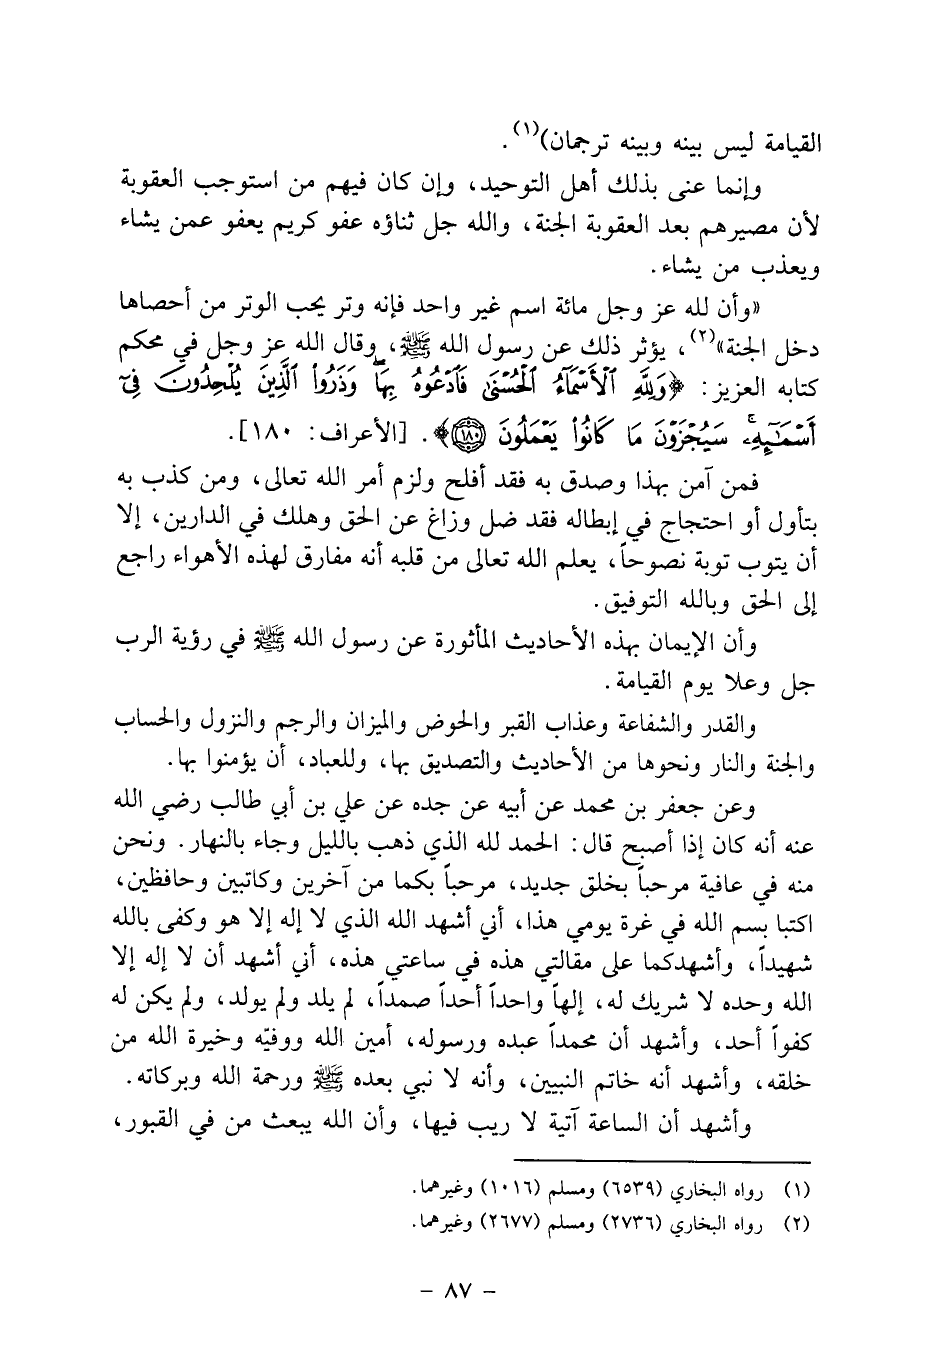 القيامة ليس بينه وبينه ترجمان)(١).
وإنما عنى بذلك أهل التوحيد، وإن كان فيهم من استوجب العقوبة
لأن مصيرهم بعد العقوبة الجنة، والله جل ثناؤه عفو كريم يعفو عمن يشاء
ويعذب من يشاء.
«وأن لله عز وجل مائة اسم غير واحد فإنه وتر يحب الوتر من أحصاها
دخل الجنة»(٢)، يؤثر ذلك عن رسول الله ﷺ، وقال الله عز وجل في محكم
كتابه العزيز: ﴿وَلِلَّهِ ٱلْأَسْمَآءُ ٱلْحُسْنَىٰ فَٱدْعُوهُ بِهَا ۖ وَذَرُوا۟ ٱلَّذِينَ يُلْحِدُونَ فِىٓ
أَسْمَـٰٓئِهِۦ ۚ سَيُجْزَوْنَ مَا كَانُوا۟ يَعْمَلُونَ ١٨٠﴾. [الأعراف: ١٨٠].
فمن آمن بهذا وصدق به فقد أفلح ولزم أمر الله تعالى، ومن كذب به
بتأول أو احتجاج في إبطاله فقد ضل وزاغ عن الحق وهلك في الدارين، إلا
أن يتوب توبة نصوحاً، يعلم الله تعالى من قلبه أنه مفارق لهذه الأهواء راجع
إلى الحق وبالله التوفيق.
وأن الإيمان بهذه الأحاديث المأثورة عن رسول الله ﷺ في رؤية الرب
جل وعلا يوم القيامة.
والقدر والشفاعة وعذاب القبر والحوض والميزان والرجم والنزول والحساب
والجنة والنار ونحوها من الأحاديث والتصديق بها، وللعباد، أن يؤمنوا بها.
وعن جعفر بن محمد عن أبيه عن جده عن علي بن أبي طالب رضي الله
عنه أنه كان إذا أصبح قال: الحمد لله الذي ذهب بالليل وجاء بالنهار. ونحن
منه في عافية مرحباً بخلق جديد، مرحباً بكما من آخرين وكاتبين وحافظين،
اكتبا بسم الله في غرة يومي هذا، أني أشهد الله الذي لا إله إلا هو وكفى بالله
شهيداً، وأشهدكما على مقالتي هذه في ساعتي هذه، أني أشهد أن لا إله إلا
الله وحده لا شريك له، إلهاً واحداً أحداً صمداً، لم يلد ولم يولد، ولم يكن له
كفواً أحد، وأشهد أن محمداً عبده ورسوله، أمين الله ووفيّه وخيرة الله من
خلقه، وأشهد أنه خاتم النبيين، وأنه لا نبي بعده ﷺ ورحمة الله وبركاته.
وأشهد أن الساعة آتية لا ريب فيها، وأن الله يبعث من في القبور،
(١) رواه البخاري (٦٥٣٩) ومسلم (١٠١٦) وغيرهما.
(٢) رواه البخاري (٢٧٣٦) ومسلم (٢٦٧٧) وغيرهما.
- ٨٧ -